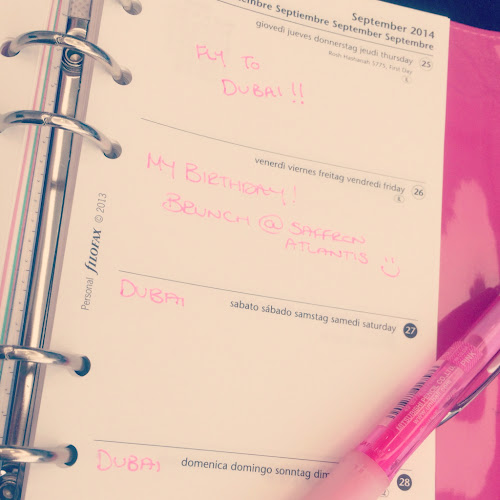 September 2014
Septiembre September Septembre
giovedì jueves donnerstag jeudi thursday 25
Rosh Hashanah 5775, First Day
FLY TO
DUBAI!!
venerdì viernes freitag vendredi friday 26
MY BIRTHDAY!
BRUNCH @ SAFFRON
ATLANTIS
Personal FILOFAX © 2013
sabato sábado samstag samedi saturday 27
DUBAI
domenica domingo sonntag 28
DUBAI